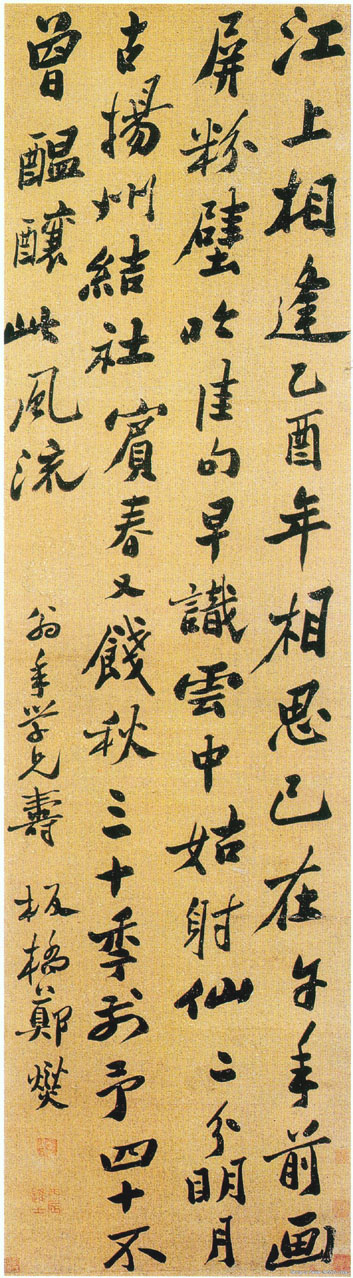 江上相逢乙酉年相思已在午年前画
屏粉壁吟佳句早識雲中姑射仙二分明月
古揚州結社賓春又餞秋三十季予四十不
曾醖釀此風流
翁年学兄壽 板橋鄭燮